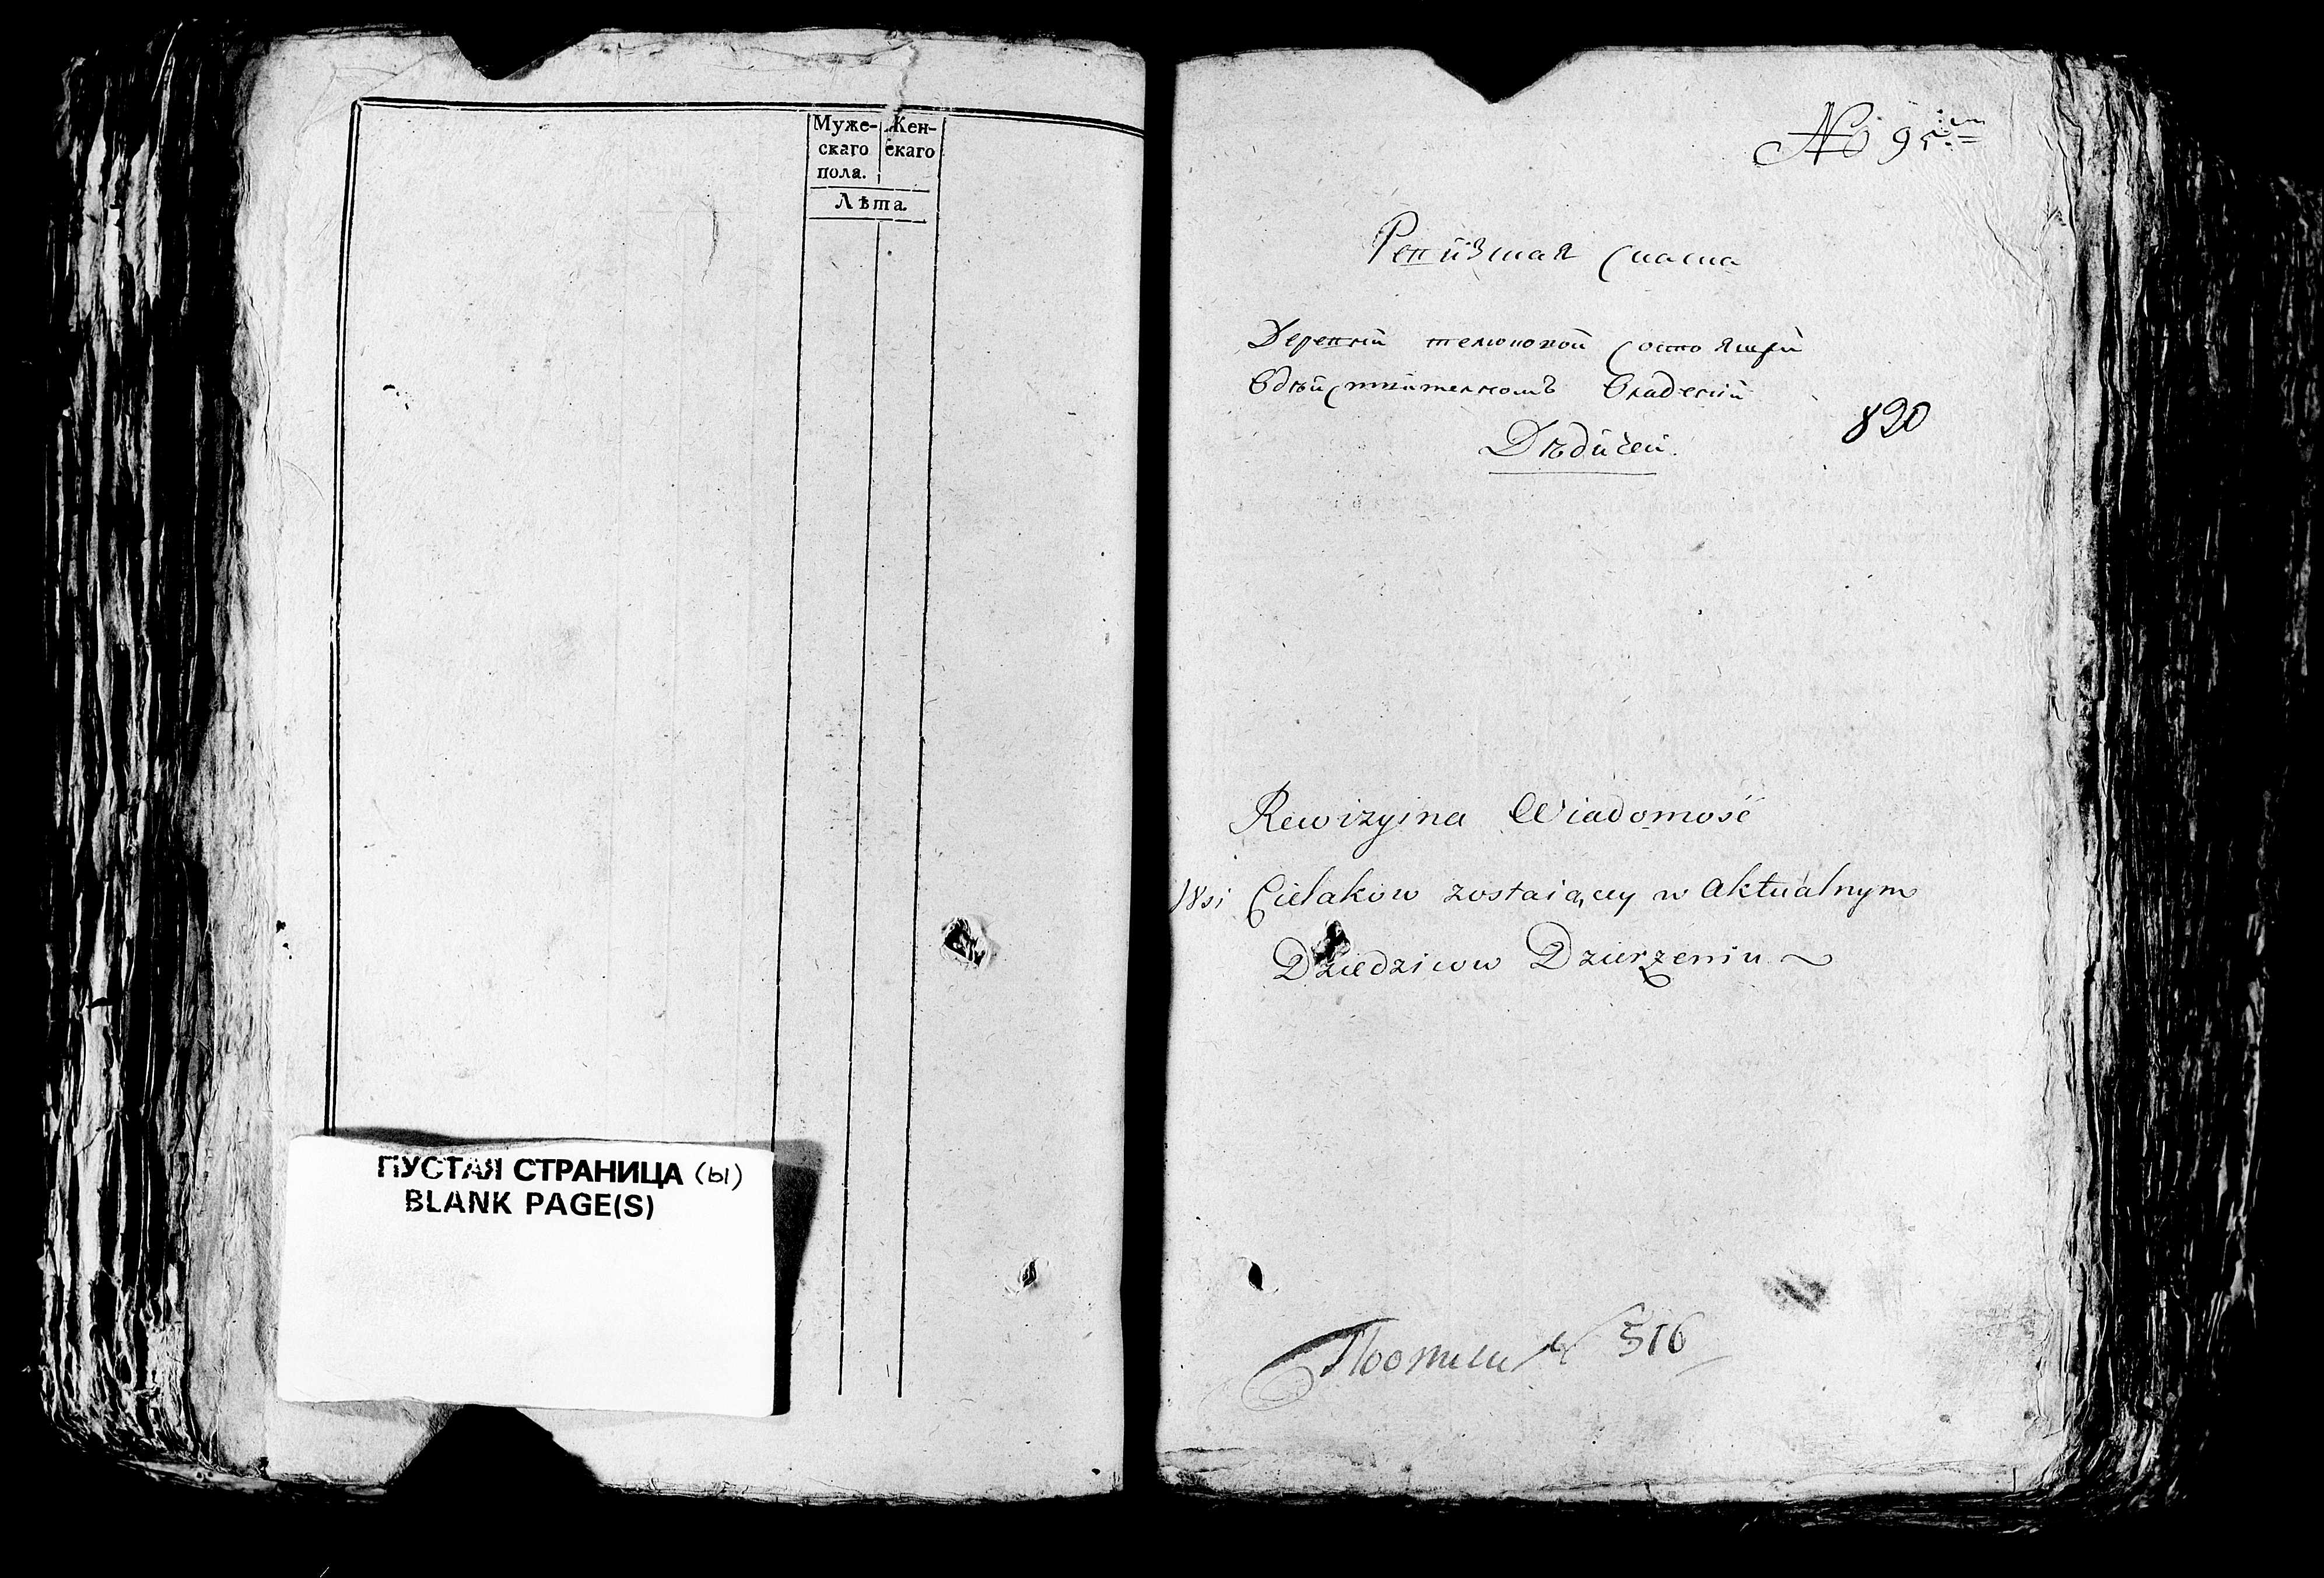 Муже-
скаго
пола.
Жен-
скаго
Лѣта
ПУСТАЯ СТРАНИЦА (ы)
BLANK PAGE(S)
№ 95
Ревизшая Сказка
Деревни телюковой Состоящей
Вдѣйствительномъ Владении
Дѣдичей.
890
Rewizyina Wiadomość
Wsi Cielakow zostaiącey w Aktualnym
Dziedzicow Dzierzeniu
516